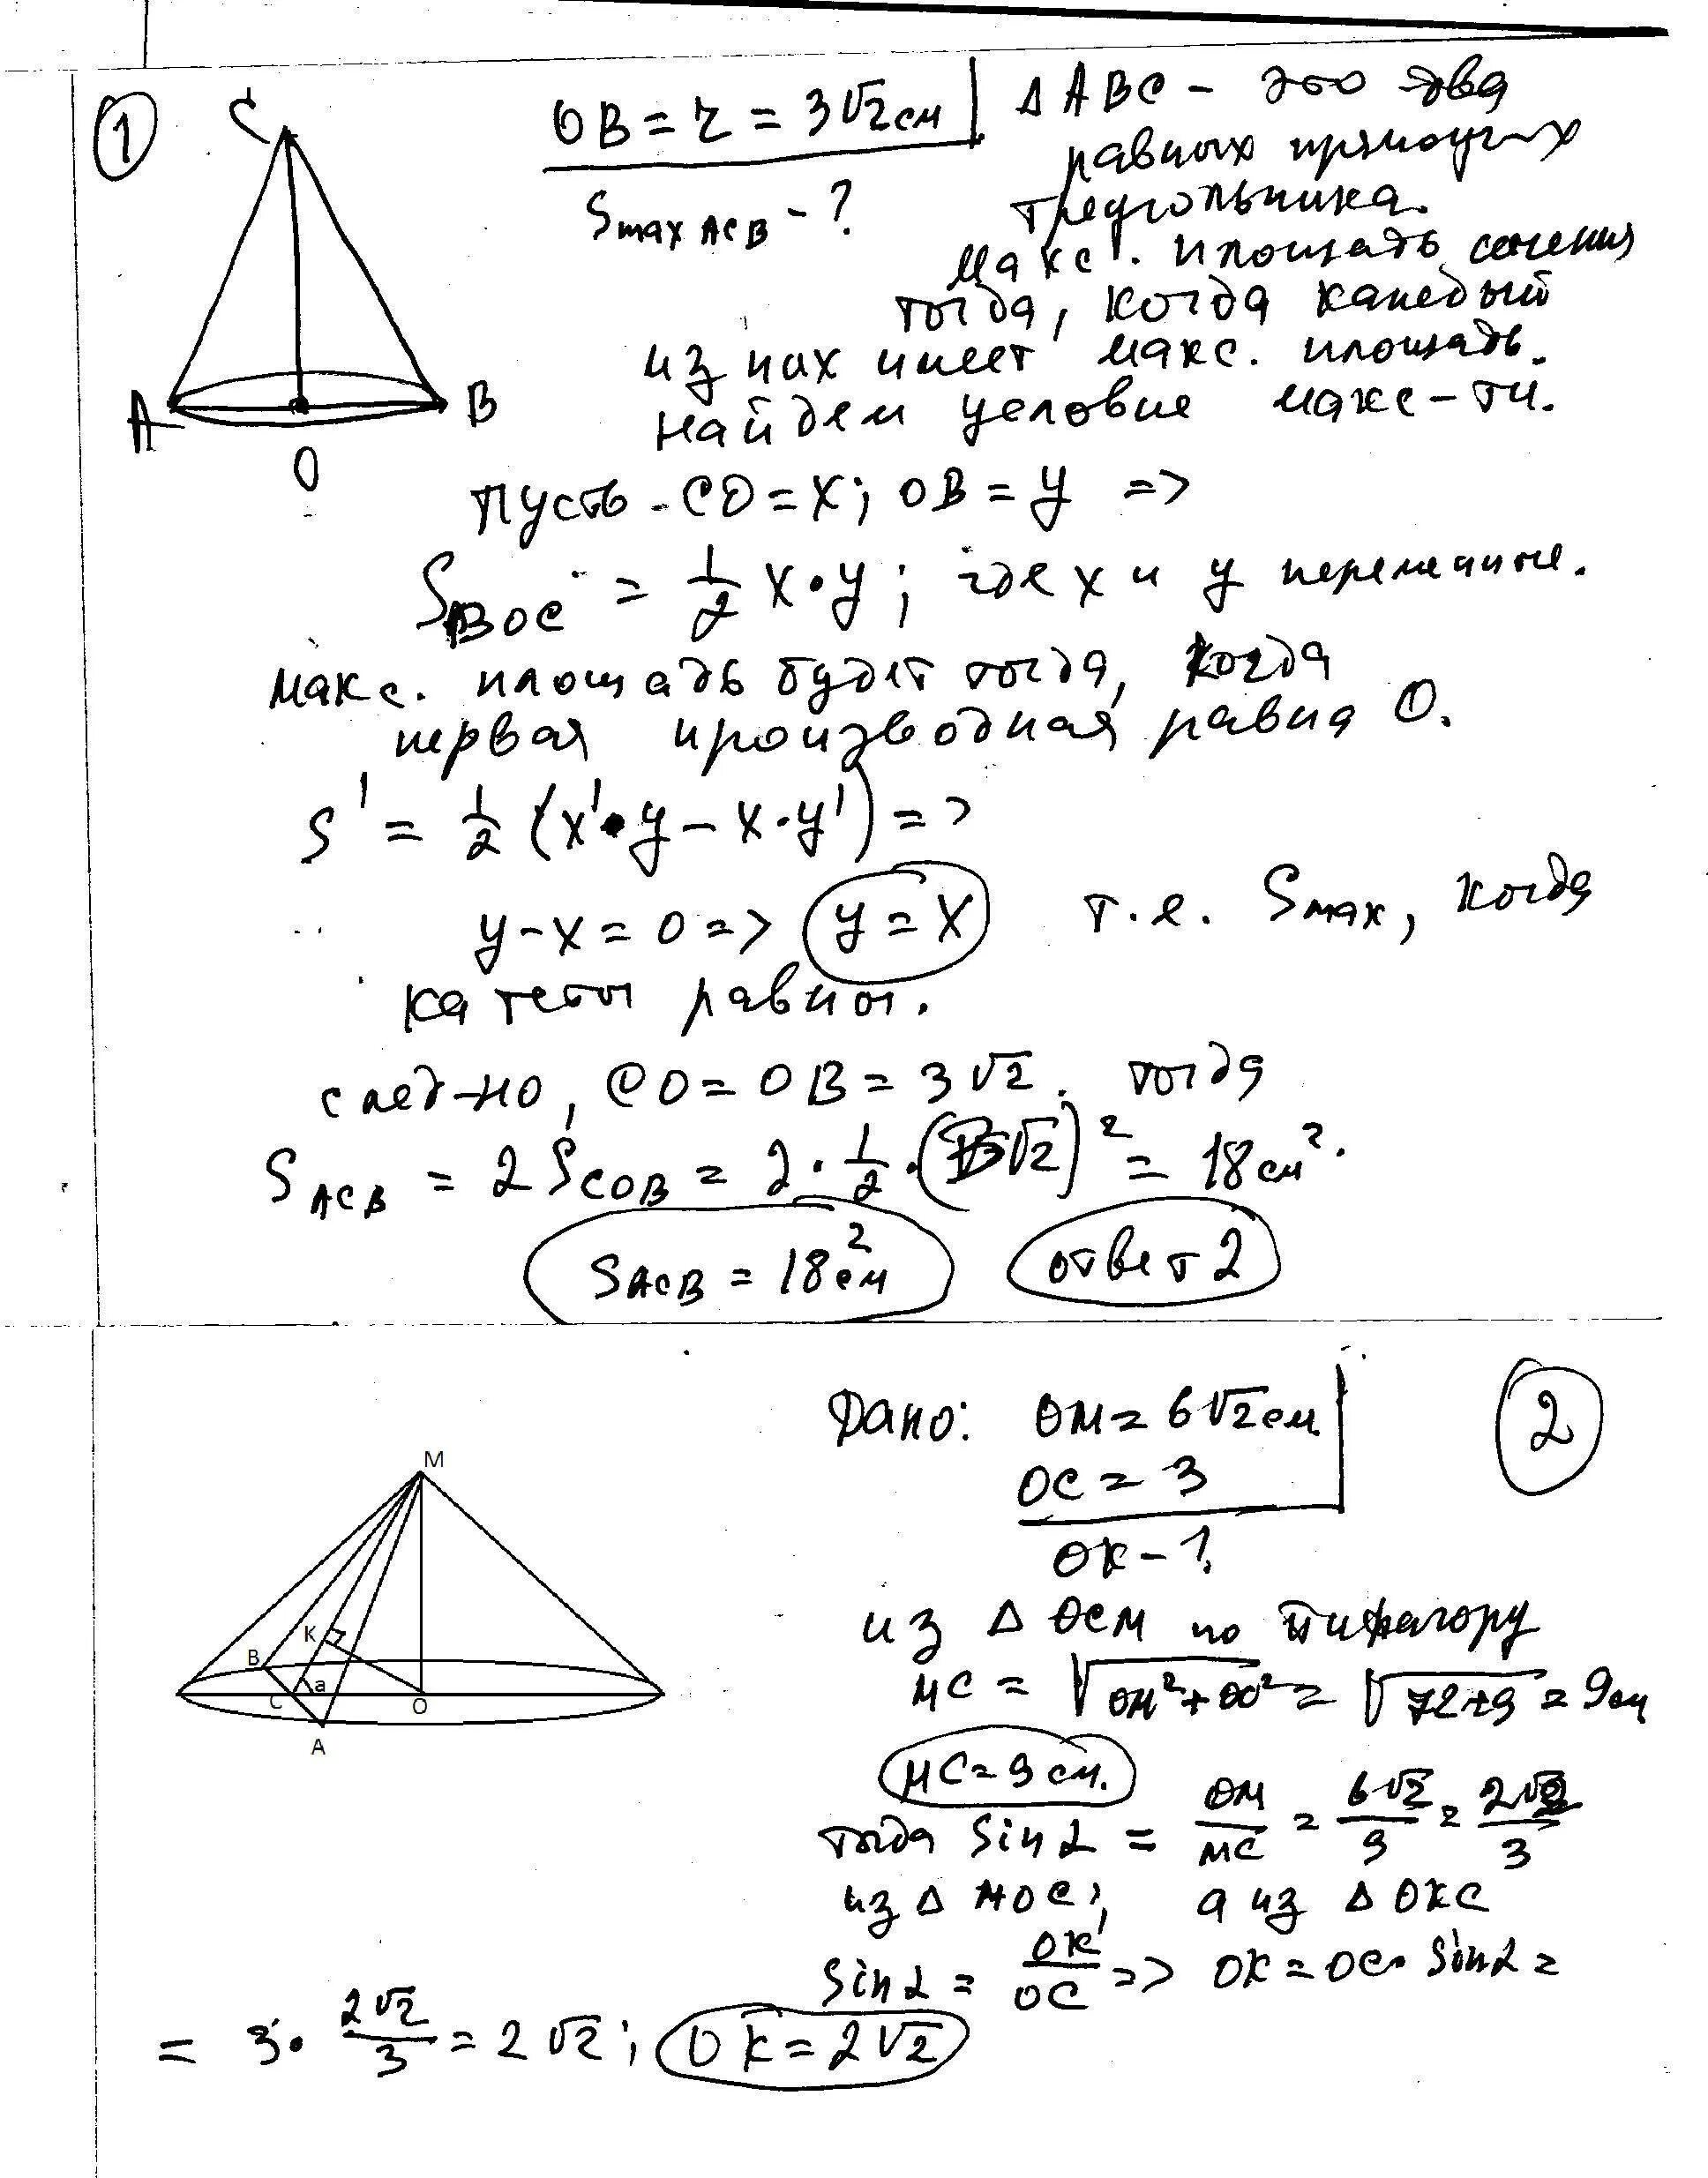 1
C
A
B
O
OB = r = 3√2 см
Smax ACB - ?
Δ ABC - это два
равных прямоуг-х
треугольника.
макс. площадь сечения
тогда, когда каждый
из них имеет макс. площадь.
найдем условие макс-ти.
Пусть CO = x; OB = y =>
S BOC = 1/2 x·y; где x и y переменные.
макс. площадь будет тогда, когда
первая производная равна 0.
S' = 1/2 (x'·y - x·y') =>
y - x = 0 => y = x т.е. Smax, когда
катеты равны.
след-но, CO = OB = 3√2. тогда
S ACB = 2 S COB = 2 · 1/2 · (3√2)² = 18 см².
S ACB = 18 см² ответ 2
2
Дано: OM = 6√2 см
OC = 3
OK - ?
M
K
B
C
a
O
A
из Δ OCM по Пифагору
MC = √OM² + OC² = √72+9 = 9 см
MC = 9 см.
тогда sin α = OM/MC = 6√2/9 = 2√2/3
из Δ MOC; а из Δ OKC
sin α = OK/OC => OK = OC · sin α =
= 3 · 2√2/3 = 2√2; OK = 2√2